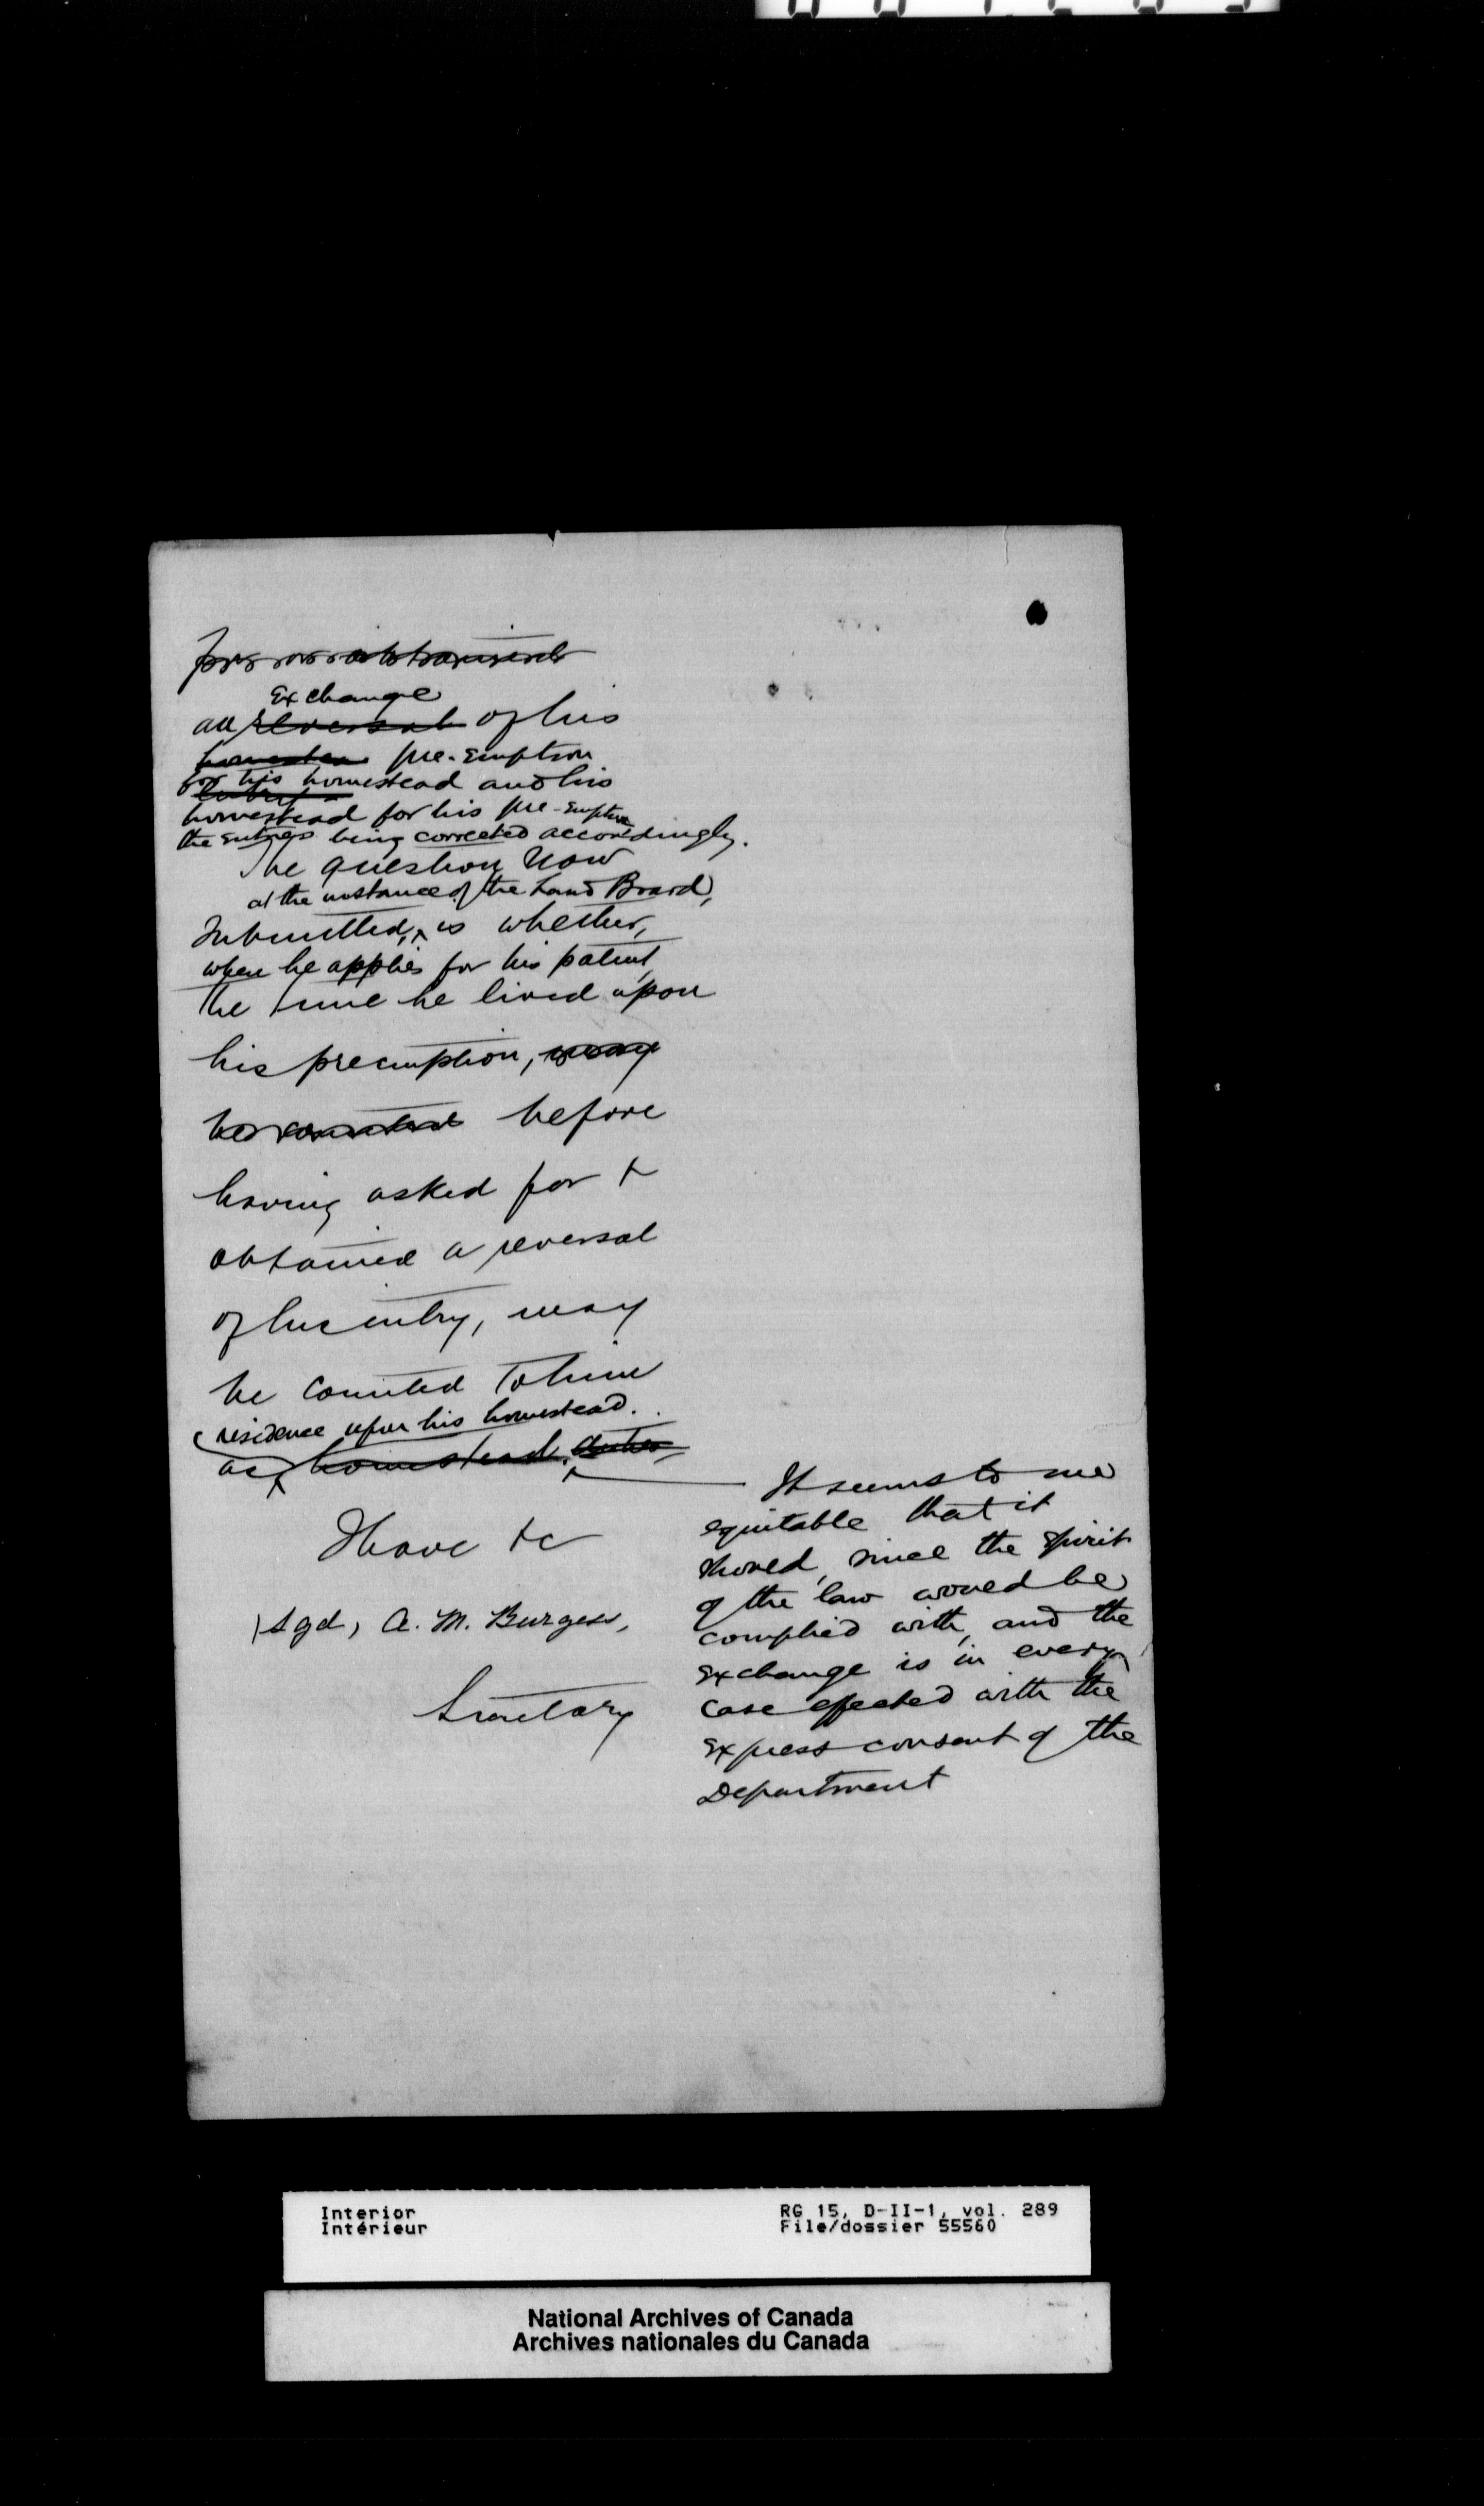 Exchange
an reversal of his
homestea pre-emption
for his homestead and his
entry
homestead for his pre-emption
the entries being corrected accordingly.
The question now
at the instance of the Land Board,
submitted, is whether,
when he applies for his patent,
the time he lived upon
his preemption, may
be counted before
having asked for &
obtained a reversal
of his entry, may
be counted to him
residence upon his homestead.
as homestead duties
It seems to me
equitable that it
should, since the spirit
of the law would be
complied with, and the
exchange is in every
case effected with the
express consent of the
Department
I have &c
(sgd) A. M. Burgess,
Secretary
Interior
Intérieur
RG 15, D-II-1, vol. 289
File/dossier 55560
National Archives of Canada
Archives nationales du Canada